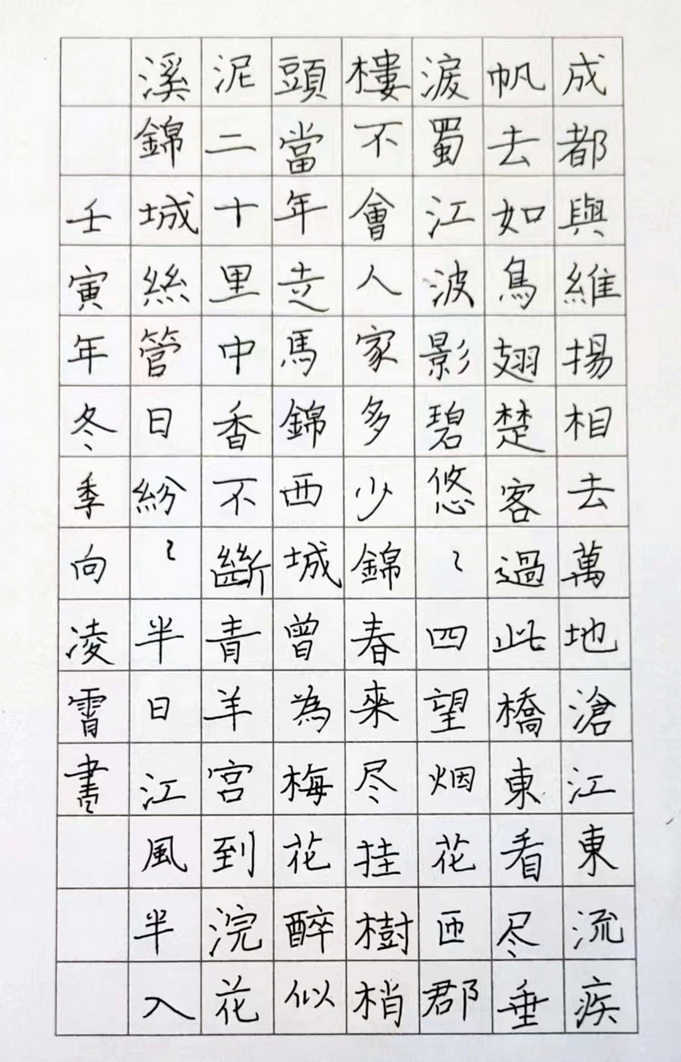 成都與維揚相去萬地滄江東流疾
帆去如鳥翅楚客過此橋東看尽垂
淚蜀江波影碧悠〻四望烟花匝郡
樓不會人家多少錦春來尽挂樹梢
頭當年走馬錦西城曾為梅花醉似
泥二十里中香不斷青羊宮到浣花
溪錦城絲管日紛〻半日江風半入
壬寅年冬季向凌霄書